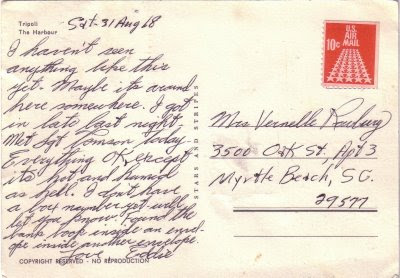 Tripoli
The Harbour
Sat-31 Aug 68
I haven't seen
anything like this
yet. Maybe its around
here somewhere. I got
in late last night.
Met Sgt Tomson today-
Everything OK except
its hot and humid
as hell. I don't have
a box number yet will
let you know. Found the
bank book inside an envel
ope inside another envelope.
Love Eddie
COPYRIGHT RESERVED - NO REPRODUCTION
STARS AND STRIPES
U.S. AIR MAIL
10c
Mrs Vernelle
3500 Oak St, Apt 3
Myrtle Beach, SC.
29577